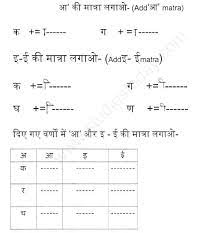 आ' की मात्रा लगाओ- (Add'आ' matra)
क +=ा------ ग +=ा------
इ-ई की मात्रा लगाओ- (Addइ- ईmatra)
क +=ि------ ग +=ी------
घ +=ी------ ण +=ि------
दिए गए वर्णों में 'आ' और इ - ई की मात्रा लगाओ-
अ आ इ ई
क ------ ------ ------
र ------ ------ ------
च ------ ------ ------